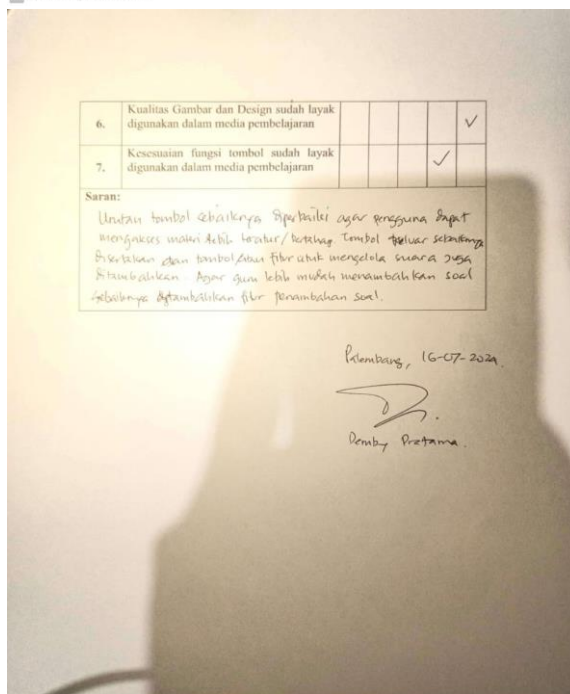 6. Kualitas Gambar dan Design sudah layak
digunakan dalam media pembelajaran ✓
7. Kesesuaian fungsi tombol sudah layak
digunakan dalam media pembelajaran ✓
Saran:
Urutan tombol sebaiknya diperbaiki agar pengguna dapat
mengakses materi lebih teratur/bertahap. Tombol keluar sebaiknya
disertakan dan tombol/atau fitur utk mengelola suara juga
ditambahkan. Agar guru lebih mudah menambahkan soal
sebaiknya ditambahkan fitur penambahan soal.
Palembang, 16-07-2024.
Demby Pratama.